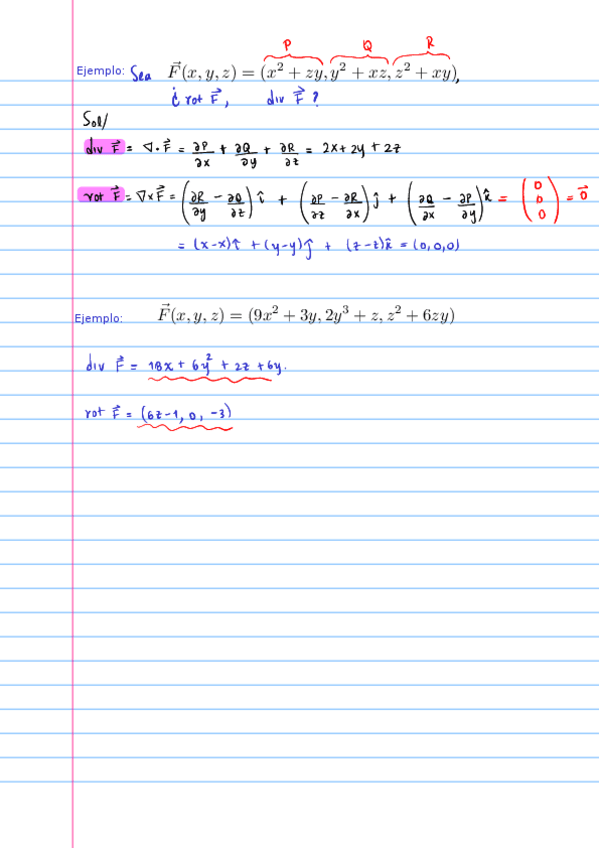 P Q R
Ejemplo: Sea F⃗(x, y, z) = (x² + zy, y² + xz, z² + xy),
¿ rot F⃗, div F⃗ ?
Sol/
div F⃗ = ∇·F⃗ = ∂P/∂x + ∂Q/∂y + ∂R/∂z = 2x + 2y + 2z
rot F⃗ = ∇×F⃗ = (∂R/∂y − ∂Q/∂z) î + (∂P/∂z − ∂R/∂x) ĵ + (∂Q/∂x − ∂P/∂y) k̂ = (0 0 0) = 0⃗
= (x−x)î + (y−y)ĵ + (z−z)k̂ = (0,0,0)
Ejemplo: F⃗(x, y, z) = (9x² + 3y, 2y³ + z, z² + 6zy)
div F⃗ = 18x + 6y² + 2z + 6y.
rot F⃗ = (6z−1, 0, −3)